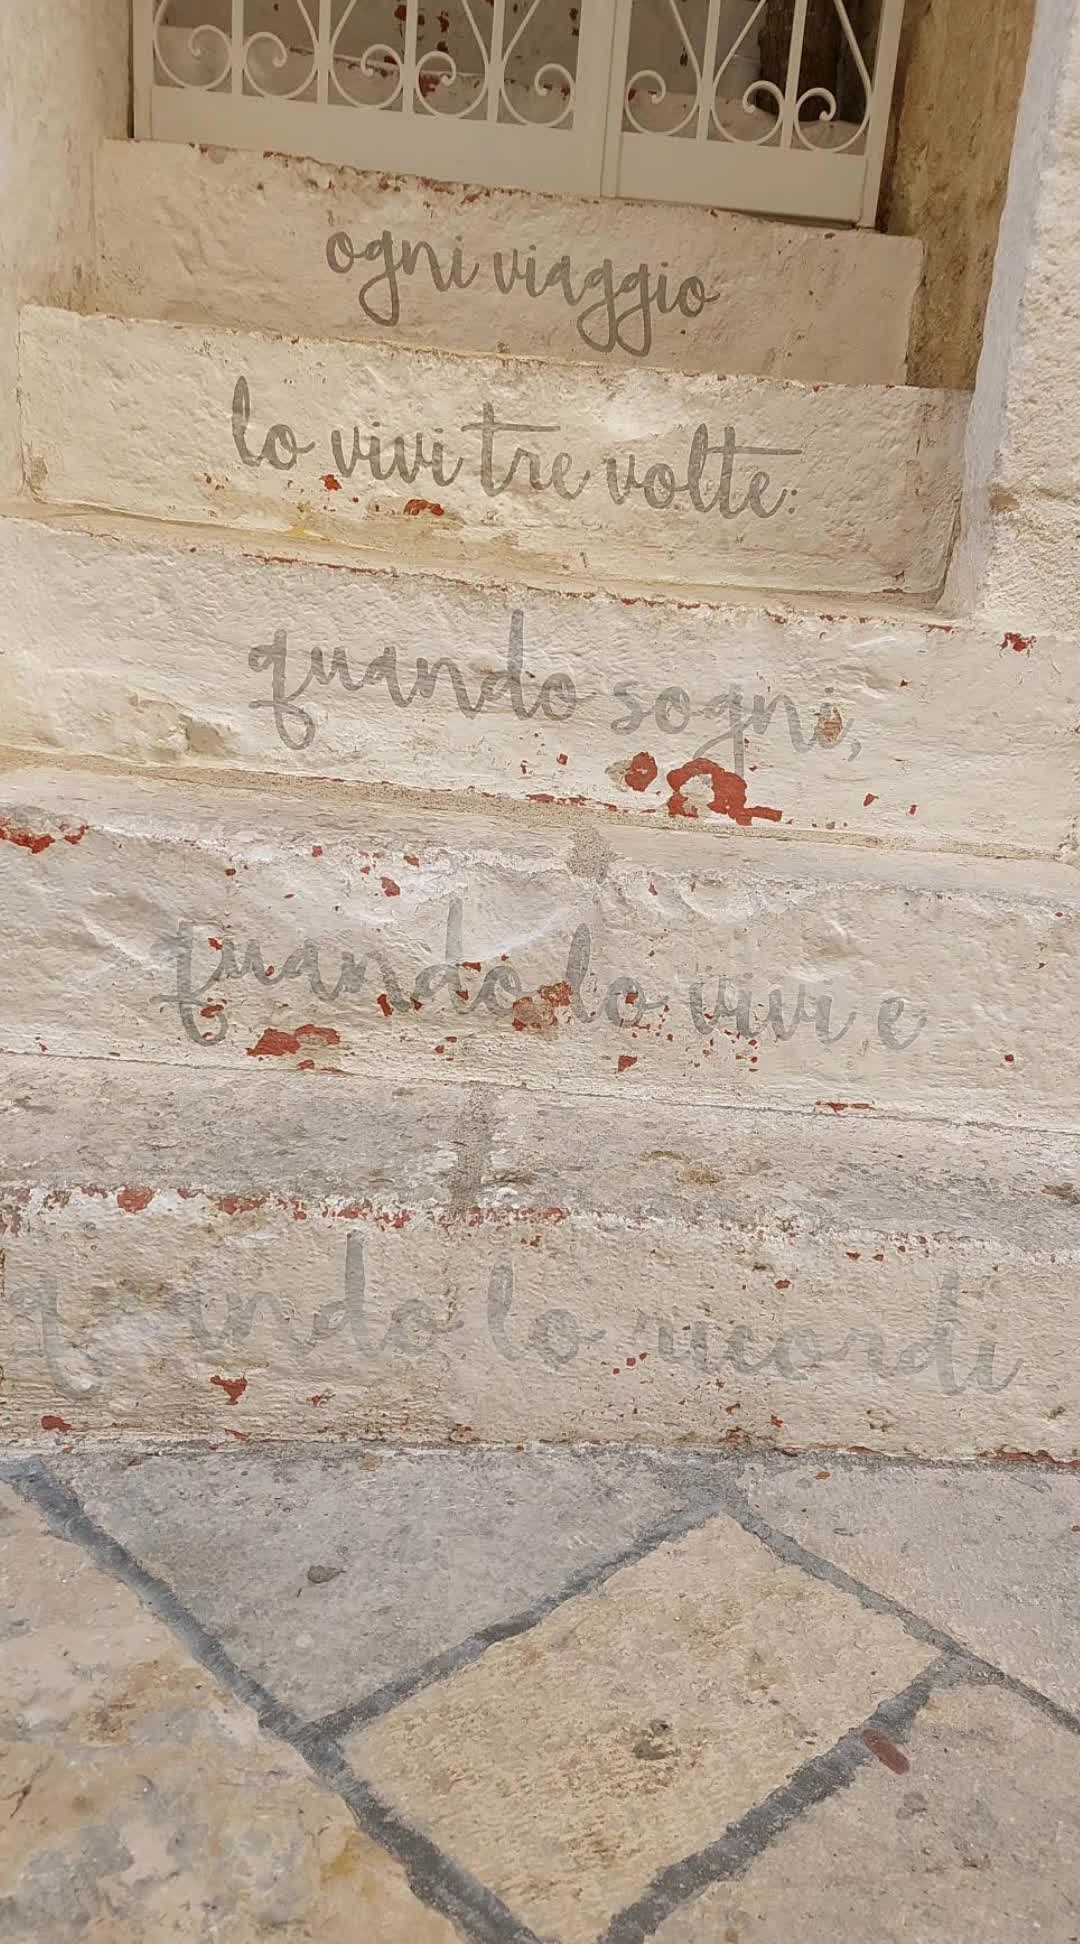 ogni viaggio
lo vivi tre volte:
quando sogni,
quando lo vivi e
quando lo ricordi